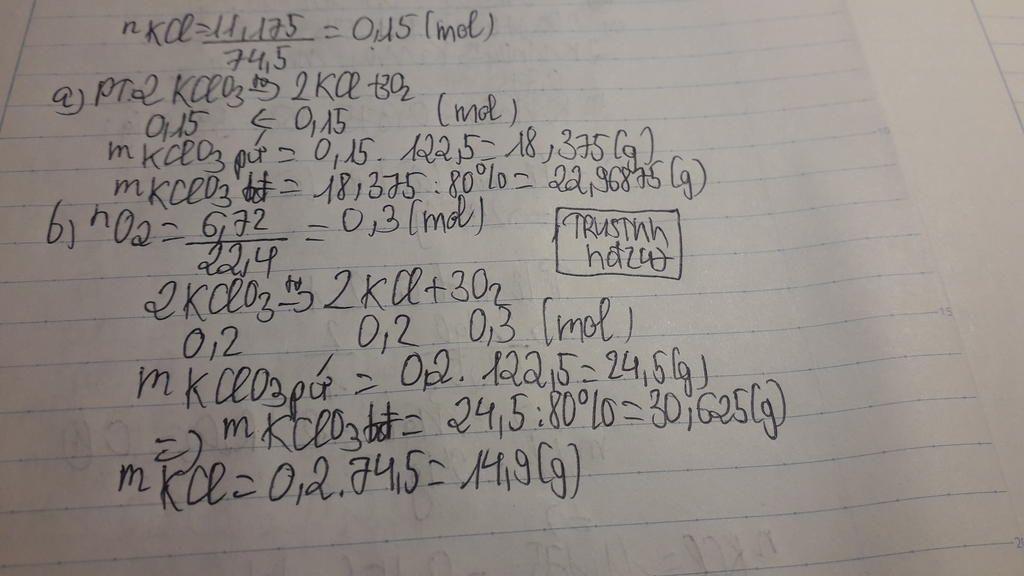 nKCl=11,175/74,5 = 0,15 (mol)
a) PT:2 KClO3 t°→ 2KCl+3O2
0,15 ← 0,15 (mol)
mKClO3 pứ = 0,15. 122,5= 18,375(g)
mKClO3 tt = 18,375:80%= 22,96875(g)
b, nO2= 6,72/22,4 = 0,3(mol)
2KClO3 t°→ 2KCl+3O2
0,2 0,2 0,3 (mol)
mKClO3 pứ = 0,2. 122,5=24,5(g)
=) mKClO3 tt= 24,5:80%=30,625(g)
mKCl= 0,2.74,5= 14,9(g)